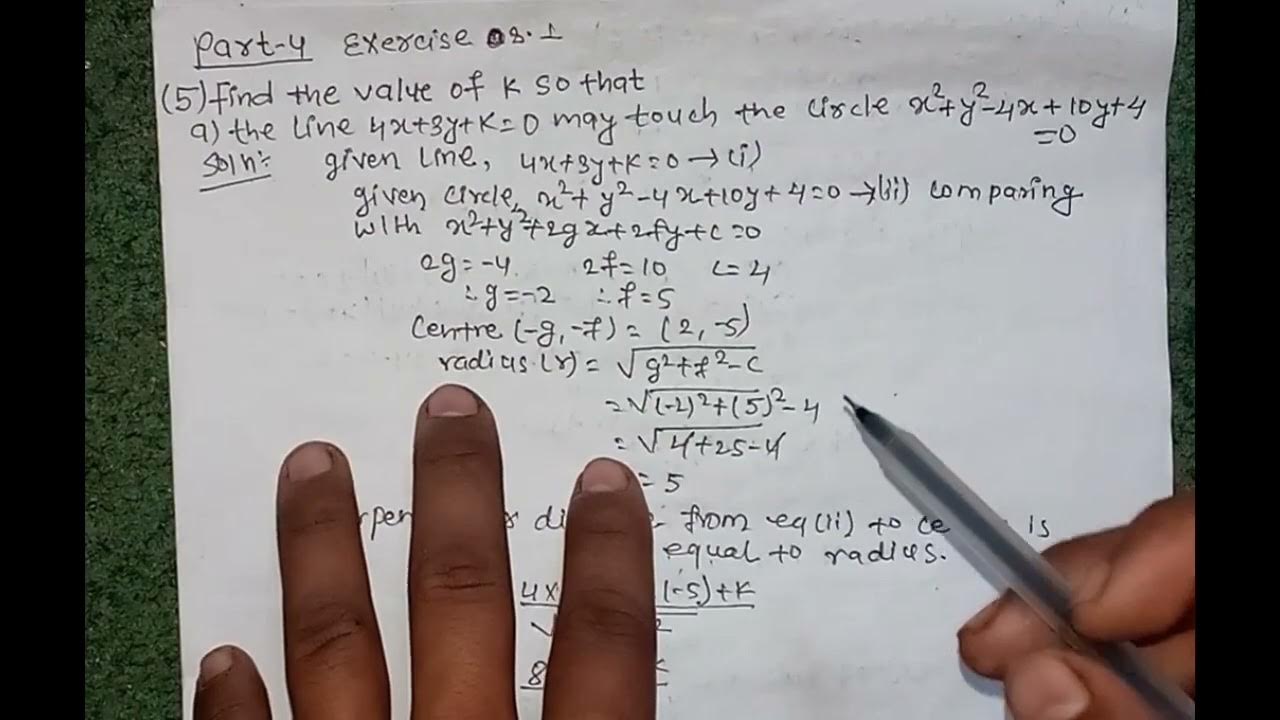 Part-4 Exercise 8.1
(5) find the value of K so that
a) the line 4x+3y+K=0 may touch the circle x²+y²-4x+10y+4
=0
Soln:- given line, 4x+3y+K=0 →(i)
given circle, x²+y²-4x+10y+4=0 →(ii) comparing
with x²+y²+2gx+2fy+c=0
2g=-4 2f=10 c=4
∴g=-2 ∴f=5
Centre (-g,-f) = (2,-5)
radius (r) = √g²+f²-c
=√(-2)²+(5)²-4
=√4+25-4
= 5
from eq(ii) to is
equal to radius.
4x (-5)+K
√ 2
8